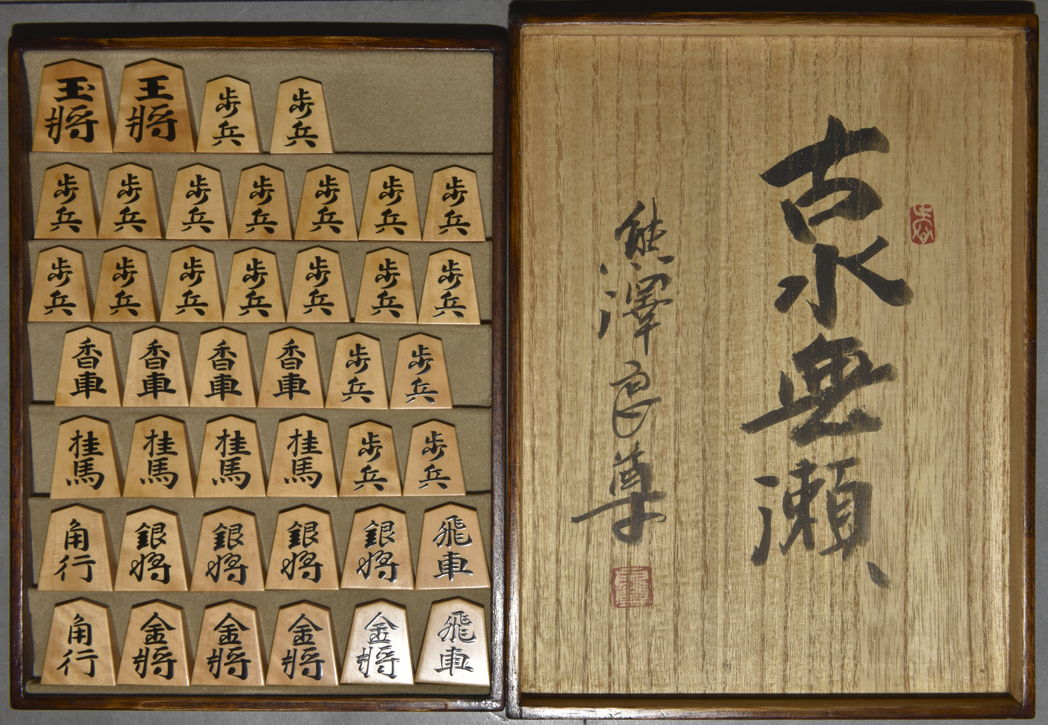 玉将 王将 歩兵 歩兵
歩兵 歩兵 歩兵 歩兵 歩兵 歩兵 歩兵
歩兵 歩兵 歩兵 歩兵 歩兵 歩兵 歩兵
香車 香車 香車 香車 歩兵 歩兵
桂馬 桂馬 桂馬 桂馬 歩兵 歩兵
角行 銀将 銀将 銀将 銀将 飛車
角行 金将 金将 金将 金将 飛車
古水無瀬
熊澤良尊